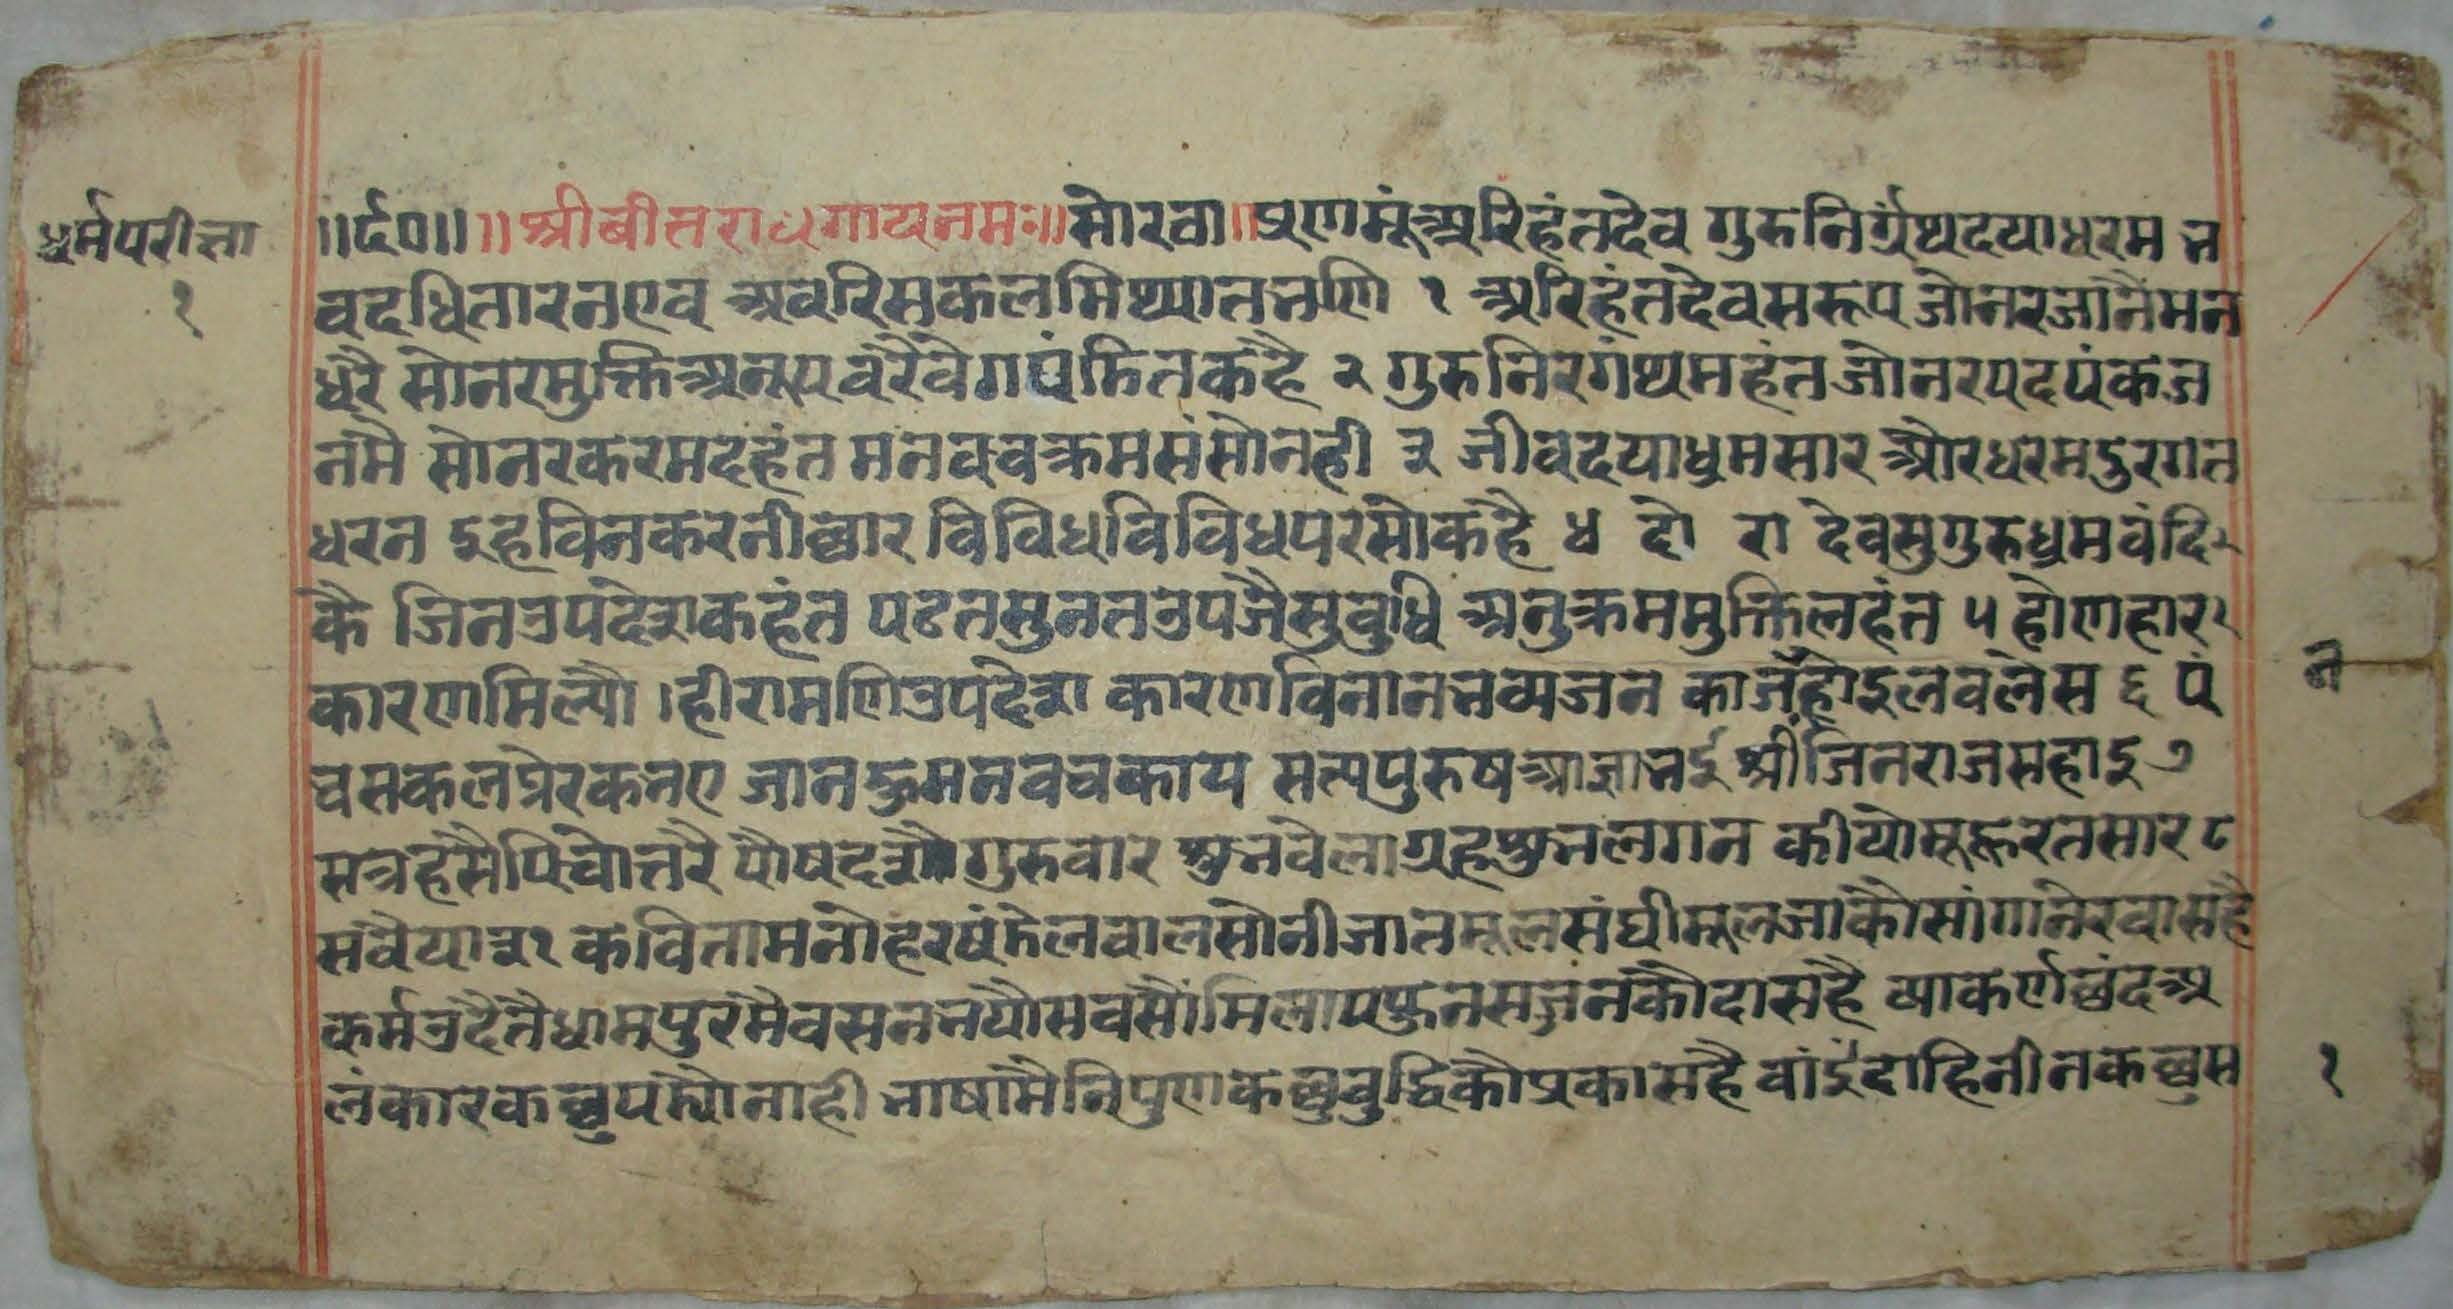 धर्मपरीक्षा
१
॥र्द०॥ ॥श्रीबीतरागायनमः॥ सोरठा॥ प्रणमूंअरिहंतदेव गुरुनिर्ग्रंथदयाधरम भ
वदधितारनएव अवरिसकलमिथ्यातभणि १ अरिहंतदेवसरूप जोनरजांनैमन
धरै सोनरमुक्तिअनूप वरैवेगपंडितकहै २ गुरुनिरगंथमहंत जोनरपदपंकज
नंमै सोनरकरमदहंत मनवचक्रमसंसोनही ३ जीवदयाध्रमसार औरधरमदुरगत
धरन इहविनकरनीछार विविधविविधपरसोकहै ४ दो रा देवसुगुरुध्रमवंदि
कै जिनउपदेशकहंत पढतसुनतउपजैसुबुधि अनुक्रममुक्तिलहंत ५ होणहार
कारणमिल्यौ ।हीरामणिउपदेश कारणविनानभव्यजन काजहोइलवलेस ६ पं
चसकलप्रेरकनए जानहुमनवचकाय सत्पपुरुषआज्ञाभई श्रीजिनराजसहाइ ७
सत्रहसैपिचोत्तरै पौषदशैगुरुवार शुभवेलाग्रहशुभलगन कीयोमूहुरतसार ८
सवैयाइ३१ कवितामनोहरषंडेलवालसोनीजातमूलसंघीमूलजाकौसांगानेरवासहै
कर्मउदैतैधामपुरमैवसनभयौसवसौंमिलापपुनसज्जनकौदासहै व्याकर्णछंदअ
लंकारकछुपढ्योनाही भाषामैनिपुणकछुबुद्धिकौप्रकासहै वांईदाहिनीनकछुस
१